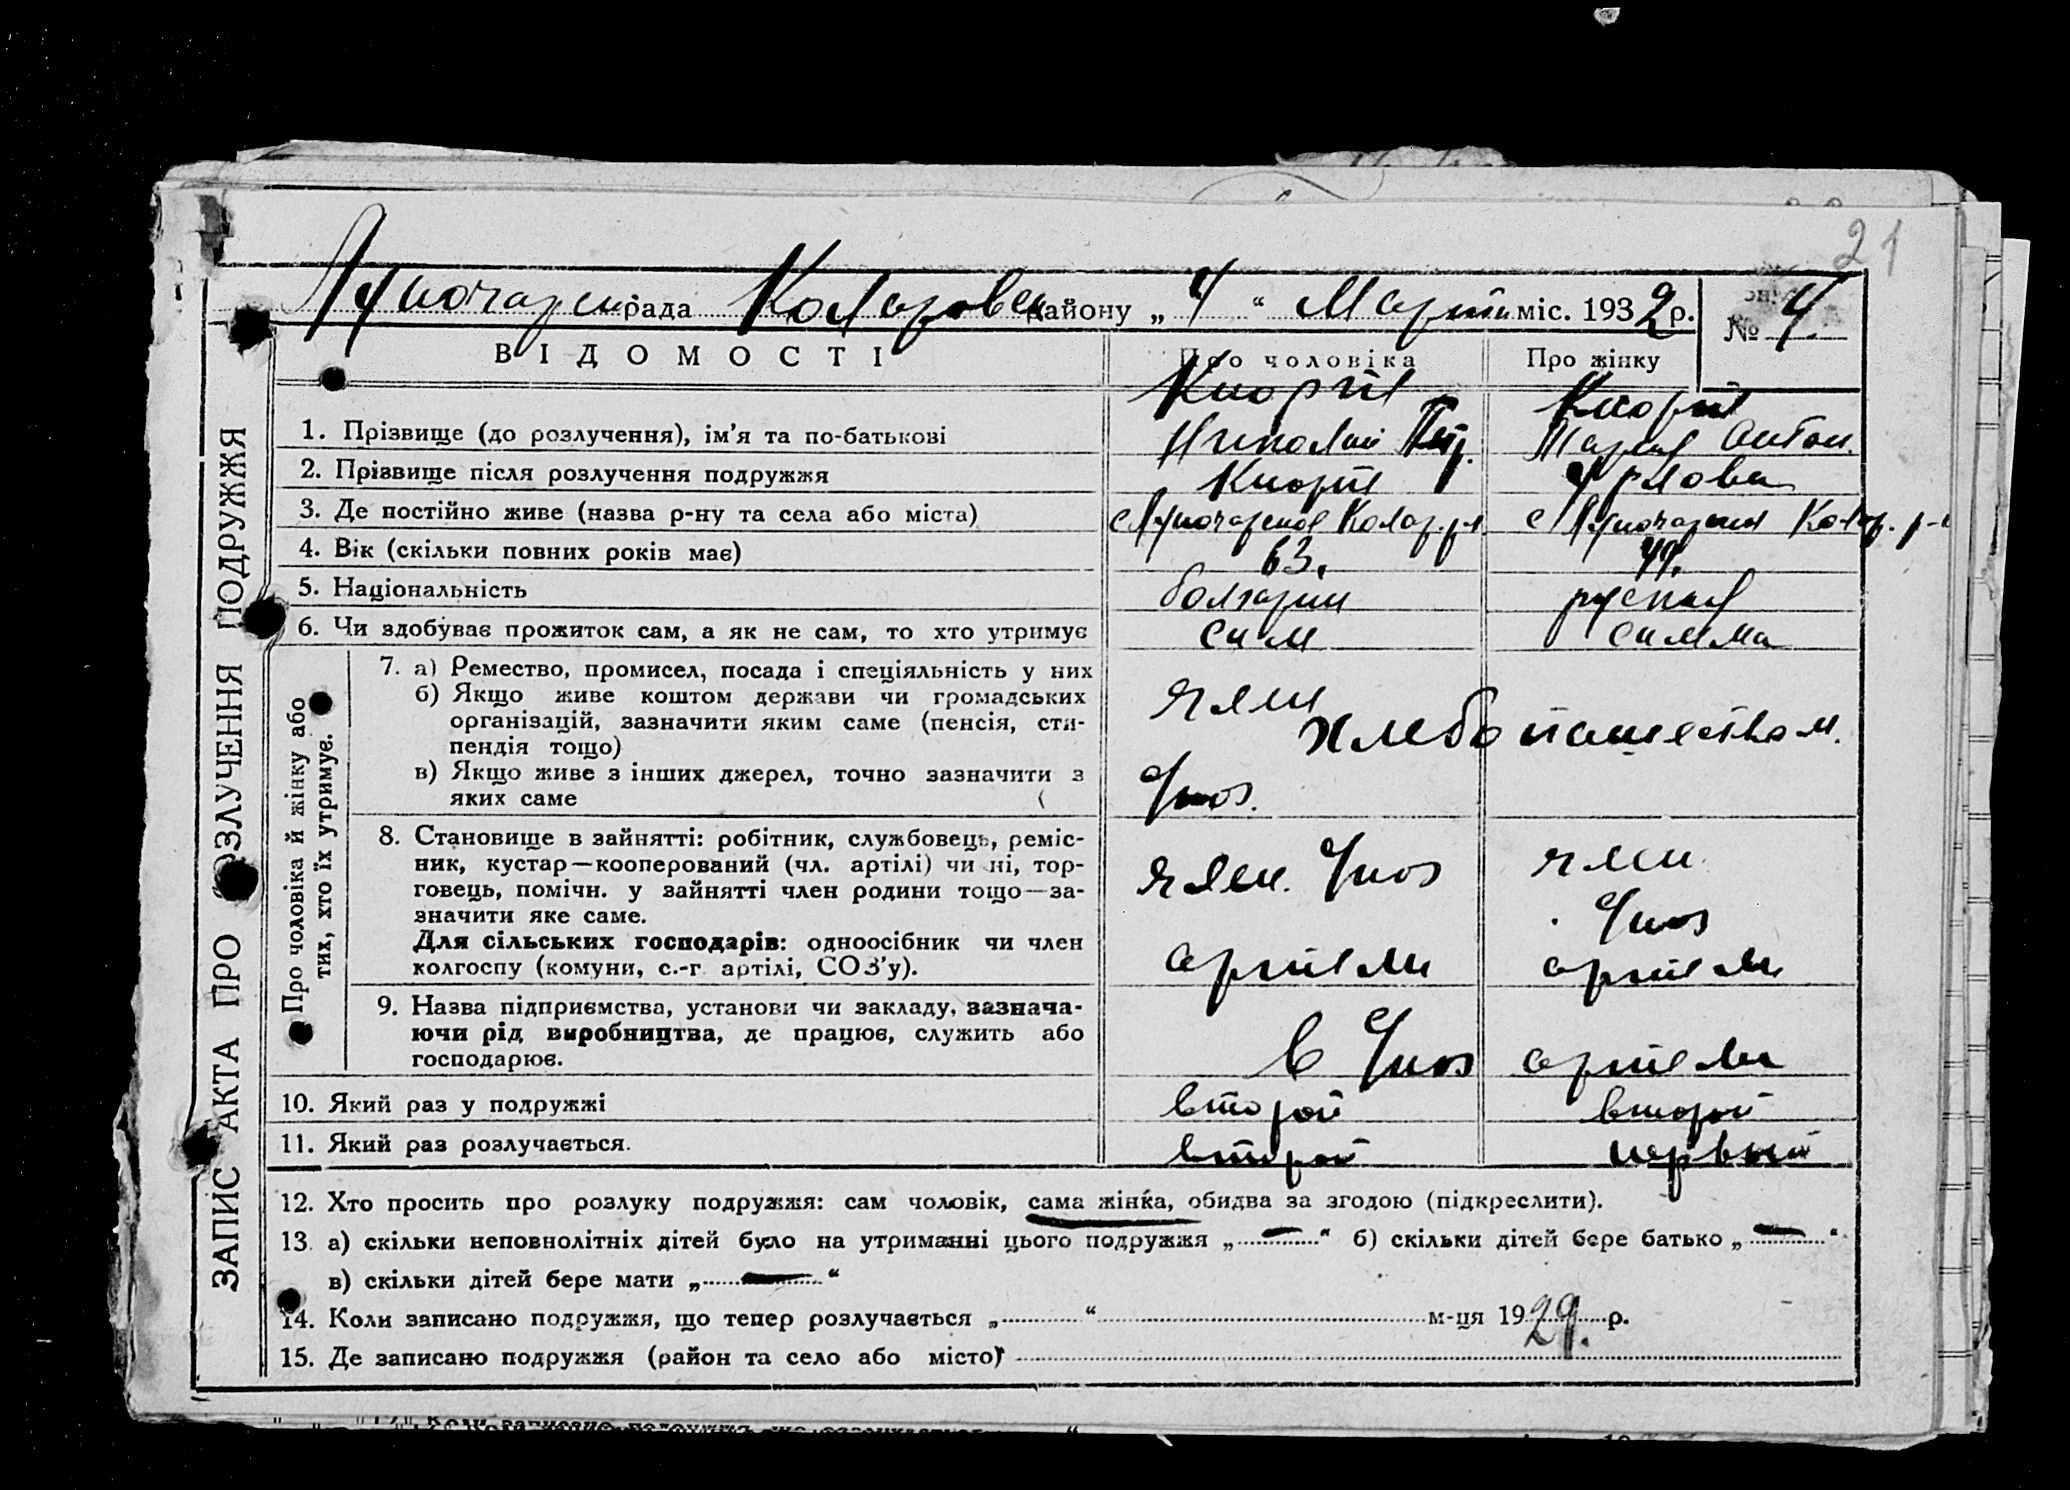 21
Луначарск рада Коларовск району „4“ Марта міс. 1932 р. № 4
ВІДОМОСТІ Про чоловіка Про жінку
1. Прізвище (до розлучення), ім'я та по-батькові Кнорт Николай Петр. Кнорт Мария Антон.
2. Прізвище після розлучення подружжя Кнорт Орлова
3. Де постійно живе (назва р-ну та села або міста) с Луначарское Колар. р-н с Луначарское Колар. р-н
4. Вік (скільки повних років має) 63.
5. Національність болгарин русская
6. Чи здобуває прожиток сам, а як не сам, то хто утримує сам самма
Про чоловіка й жінку або
тих, хто їх утримує.
7. а) Ремество, промисел, посада і спеціяльність у них член
б) Якщо живе коштом держави чи громадських хлебопашеством.
організацій, зазначити яким саме (пенсія, сти-
пендія тощо)
в) Якщо живе з інших джерел, точно зазначити з
яких саме
8. Становище в зайнятті: робітник, службовець, реміс-
ник, кустар—кооперований (чл. артілі) чи ні, тор- член. член
говець, помічн. у зайнятті член родини тощо—за-
значити яке саме.
Для сільських господарів: одноосібник чи член
колгоспу (комуни, с.-г. артілі, СОЗ'у). артели артели
9. Назва підприємства, установи чи закладу, зазнача-
ючи рід виробництва, де працює, служить або
господарює. в артели
10. Який раз у подружжі второй второй
11. Який раз розлучається. второй первый
12. Хто просить про розлуку подружжя: сам чоловік, сама жінка, обидва за згодою (підкреслити).
13. а) скільки неповнолітніх дітей було на утриманні цього подружжя „—“ б) скільки дітей бере батько „—“
в) скільки дітей бере мати „—“
14. Коли записано подружжя, що тепер розлучається „......“ ...... м-ця 1929 р.
15. Де записано подружжя (район та село або місто) ......
ЗАПИС АКТА ПРО РОЗЛУЧЕННЯ ПОДРУЖЖЯ